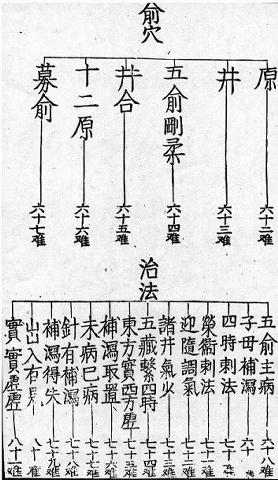 俞穴
原 六十二难
井 六十三难
五俞剛柔 六十四难
井合 六十五难
十二原 六十六难
募俞 六十七难
治法
五俞主病 六八难
子母補瀉 六十
四時刺法 七十难
榮衞刺法 七十一难
迎隨調氣 七十二难
諸井氣火 七十三难
五藏繫四時 七十四难
東方實西方虛 七十五难
補瀉取置 七十六难
未病已病 七十七难
針有補瀉 七十八难
補瀉得失 七十九难
出入有見 八十难
實實虛虛 八十一难